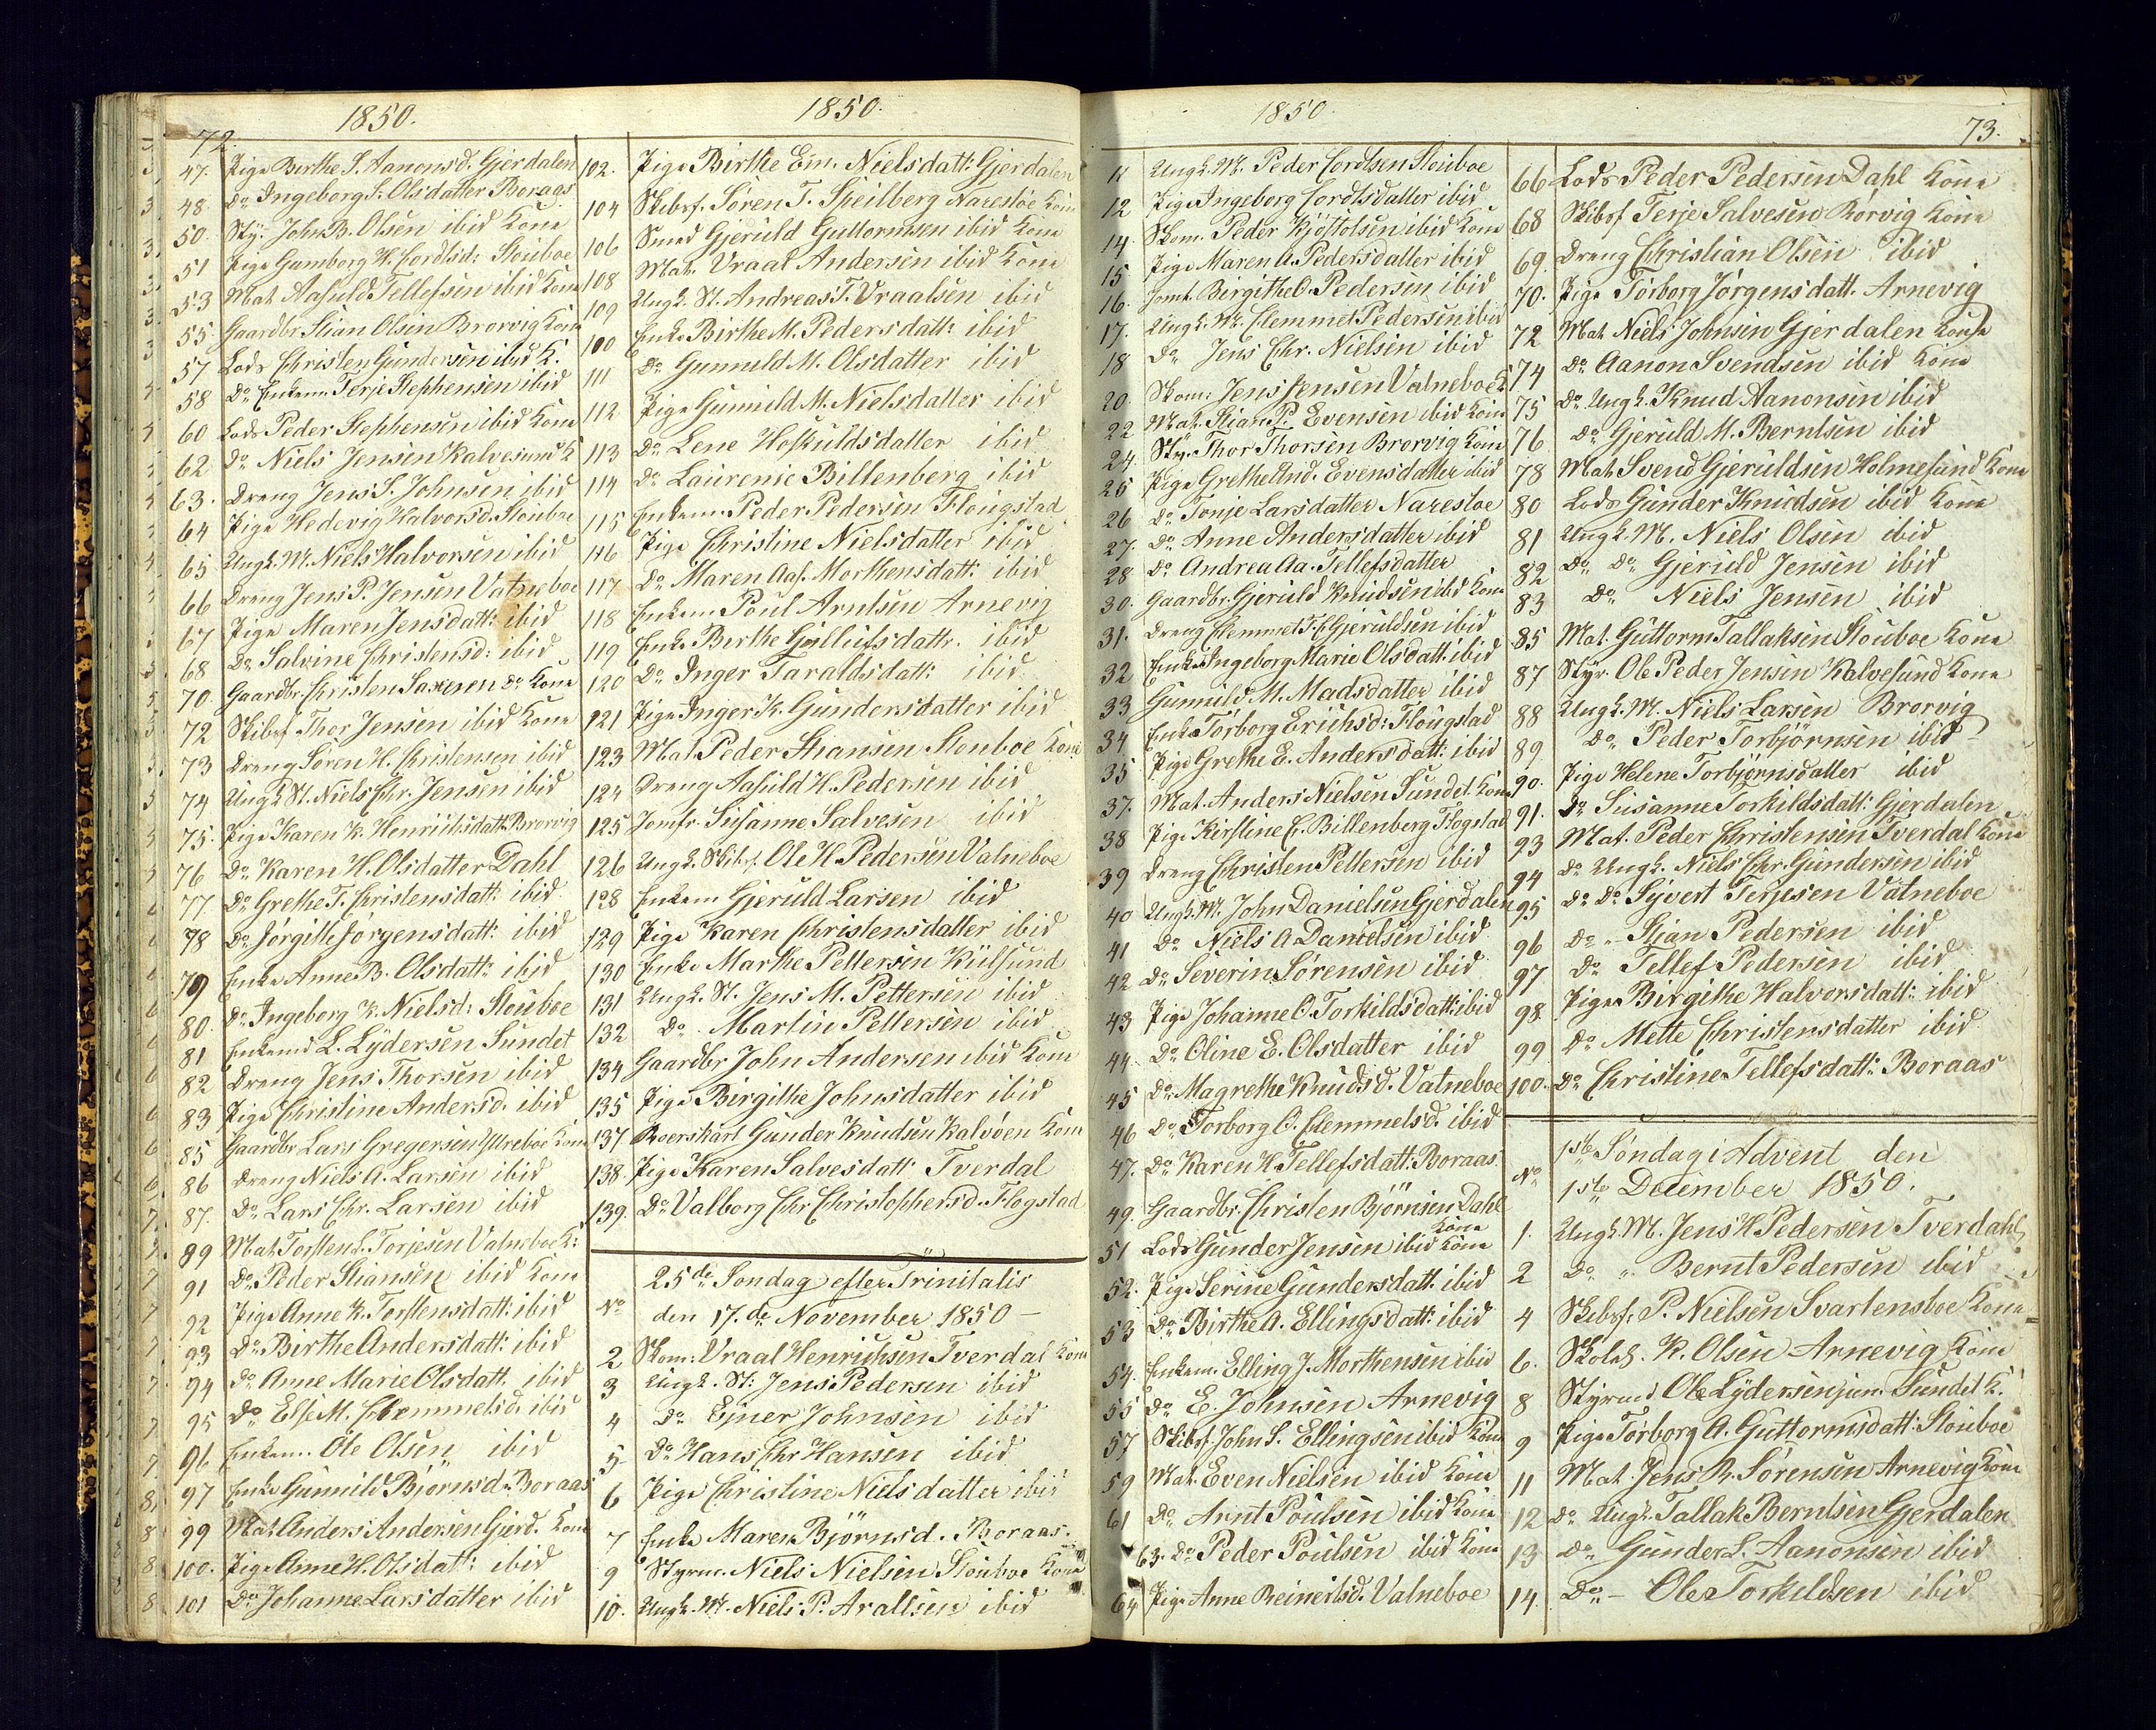 72.
1850.
1850.
47. Pige Birthe S. Aanonsd. Gjerdalen
48 Do Ingeborg S. Olsdatter Boraas
50. Sty. John B. Olsen ibid Kone
51 Pige Gumborg H. Cordtsd: Stouboe
53 Mat Aasuld Tellefsen ibid Kone
55 Gaardbr Stian Olsen Brorvig Kone
57 Lods Christen Gundersen ibid K.
58 Do Enkem. Terje Stephensen ibid
60 Lods Peder Stephensen ibid Kone
62 Do Niels Jensen Kalvesund K
63. Dreng Jens S. Johnsen ibid
64 Pige Hedevig Halvorsd. Stouboe
65 Ungk. M. Niels Halvorsen ibid
66 Dreng Jens P. Jensen Vatneboe
67 Pige Maren Jensdatt: ibid
68 Do Salvine Christensd: ibid
70. Gaardbr. Christen Saxesen do Kone
72 Skibsf Thor Jensen ibid Kone
73 Dreng Søren H. Christensen ibid
74 Ungk St. Niels Chr. Jensen ibid
75. Pige Karen K. Henrichsdatt Brorvig
76 Do Karen H. Olsdatter Dahl
77 Do Grethe T. Christensdatt: ibid
78 Do Jørgitte Jørgensdatt: ibid
79 Enke Anne B. Olsdatt: ibid
80. Do Ingeborg K. Nielsd: Stouboe
81 Enkemd L. Lydersen Sundet
82 Dreng Jens Thorsen ibid
83 Pige Christine Andersd. ibid
85 Gaardbr Lars Gregersen Ytreboe Kone
86 Dreng Niels A. Larsen ibid
87. Do Lars Chr. Larsen ibid
89 Mat Torsten L. Torjesen Vatneboe K:
91 Do Peder Stiansen ibid Kone
92 Pige Anne K. Torstensdatt: ibid
93 Do Birthe Andersdatt: ibid
94 do Anne Marie Olsdatt. ibid
95 Do Else M. Clemmetsd. ibid
96 Enkem. Ole Olsen ibid
97 Enke Gunnild Bjørnsd: Boraas
99 Mat Anders Andersen Gjerd. Kone
100. Pige Anne H. Olsdatt: ibid
101 Do Johanne Larsdatter ibid
102. Pige Birthe Em. Nielsdatt: Gjerdalen
104 Skibsf. Søren T. Speilberg Narestøe Kone
106 Smed Gjeruld Guttormsen ibid Kone
108 Mat. Vraal Andersen ibid Kone
109 Ungk. St. Andreas T. Vraalsen ibid
100 Enke Birthe M. Pedersdatt: ibid
111 Do Gunnuld M. Olsdatter ibid
112 Pige Gunnild M. Nielsdatter ibid
113 Do Lene Hoskuldsdatter ibid
114 Do Laurense Biltenberg ibid
115 Enkem. Peder Pedersen Flougstad
116 Pige Christine Nielsdatter ibid
117 Do Maren Aas. Morthensdatt: ibid
118 Enkem. Poul Arntsen Arnevig
119 Enke Birthe Gjellufsdatt. ibid
120 Do Inger Taraldsdatt: ibid
121 Pige Inger K. Gundersdatter ibid
123 Mat Peder Stiansen Stouboe Kone
124 Dreng Aasuld H. Pedersen ibid
125 Jomfr. Susanne Salvesen ibid
126 Ungk. Skibsf. Ole H. Pedersen Vatneboe
128 Enkem Gjeruld Larsen ibid
129 Pige Karen Christensdatter ibid
130 Enke Marthe Pettersen Kulsund
131 Ungk. St. Jens M. Pettersen ibid
132 Do Martin Pettersen ibid
134 Gaardbr John Andersen ibid Kone
135 Pige Birgithe Johnsdatter ibid
137 Roerskarl Gunder Knudsen Kalvøen Kone
138. Pige Karen Salvesdatt: Tverdal
139. Do Valborg Chr. Christophersd. Flogstad
25de Søndag efter Trinitatis
No den 17.de November 1850 —
2 Skom: Vraal Henrichsen Tverdal Kone
3 Ungk. St: Jens Pedersen ibid
4 Do Ejner Johnsen ibid
5 Do Hans Chr Hansen ibid
6 Pige Christine Nielsdatter ibid
7 Enke Maren Bjørnsd. Boraas.
9 Styrm. Niels Nielsen Stouboe Kone
10. Ungk. M. Niels P. Aratlsen ibid
1850
73.
11 Ungk. M. Peder Cordtsen Stouboe
12 Pige Ingeborg Cordtsdatter ibid
14. Skom. Peder Kjøstolsen ibid Kone
15 Pige Maren A. Pedersdatter ibid
16. Jomf. Birgithe O. Pedersen ibid
17. Ungk. M. Clemmet Pedersen ibid
18 Do Jens Chr. Nielsen ibid
20. Skom: Jens Jensen Vatneboe K
22 Mat. Stian P. Evensen ibid Kone
24. Sty. Thor Thorsen Brorvig Kone
25 Pige Grethe And. Evensdatter ibid
26 Do Tonje Larsdatter Narestoe
27. Do Anne Andersdatter ibid
28 Do Andrea Aa. Tellefsdatter
30. Gaardbr. Gjeruld Knudsen ibid Kone
31. Dreng Clemmet T. Gjeruldsen ibid
32 Enke Ingeborg Marie Olsdatt. ibid
33 Gunnild M. Madsdatter ibid
34 Enke Torborg Erichsd: Flougstad
35 Pige Grethe E. Andersdatt: ibid
37. Mat. Anders Nielsen Sundet. Kone
38 Pige Kirstine C. Billenberg Flogstad
39 Dreng Christen Pettersen ibid
40 Ungk. M. John Danielsen Gjerdalen
41 Do Niels A Danielsen ibid
42 Do Severin Sørensen ibid
43 Pige Johanne O. Torkildsdatt: ibid
44. Do Oline E. Olsdatter ibid
45 Do Magrethe Knudsd. Vatneboe
46 Do Torborg O. Clemmetsd. ibid
47. Do Karen H. Tellefsdatt: Boraas
49. Gaardbr. Christen Bjørnsen Dahl
Kone
51 Lods Gunder Jensen ibid Kone
52. Pige Serine Gundersdatt. ibid
53 Do Birthe A. Ellingsdatt: ibid
54. Enkem. Elling J. Morthensen ibid
55 Do E. Johnsen Arnevig
57 Skibsf. John S. Ellingsen ibid Kone
59 Mat. Even Nielsen ibid Kone
61 Do Arnt Poulsen ibid Kone
63. Do Peder Poulsen ibid Kone
64 Pige Anne Reinertsd. Vatneboe
66 Lods Peder Pedersen Dahl Kone
68 Skibsf Terje Salvesen Rørvig Kone
69. Dreng Christian Olsen ibid
70. Pige Torborg Jørgensdatt. Arnevig
72 Mat. Niels Johnsen Gjerdalen Kone
74 Do Aanon Svendsen ibid Kone
75 Do Ungk. Knud Aanonsen ibid
76 Do Gjeruld M. Berntsen ibid
78 Mat Svend Gjeruldsen Holmesund Kone
80 Lods Gunder Knudsen ibid Kone
81 Ungk. M. Niels Olsen ibid
82 Do Do Gjeruld Jensen ibid
83 Do Niels Jensen ibid
85 Mat. Guttorm Tallaksen Stouboe Kone
87 Styr. Ole Peder Jensen Kalvesund Kone
88 Ungk. M. Niels Larsen Brorvig
89 Do Peder Torbjørnsen ibid
90. Pige Helene Torbjørnsdatter ibid
91. Do Susanne Torkildsdatt: Gjerdalen
93 Mat. Peder Christensen Tverdal Kone
94 Do Ungk. Niels Chr. Gundersen ibid
95 Do Do Syvert Terjesen Vatneboe
96 Do - Stian Pedersen ibid
97 Do Tellef Pedersen ibid
98. Pige Birgithe Halvorsdatt: ibid
99 Do Mette Christensdatter ibid
100. Do Christine Tellefsdatt: Boraas
1ste Søndag i Advent den
No 1ste December 1850.
1. Ungk. M. Jens H. Pedersen Tverdahl
2 Do „ Bernt Pedersen ibid
4 Skibsf. P. Nielsen Svartensboe Kone
6. Skolel. K. Olsen Arnevig Kone
8 Styrmd Ole Lydersen jun. Sundet K.
9 Pige Torborg A. Guttormsdatt: Stouboe
11 Mat. Jens R. Sørensen Arnevig Kone
12 Do Ungk. Tallak Berntsen Gjerdalen
13 Do Gunder L. Aanonsen ibid
14. Do - Ole Torkeldsen ibid